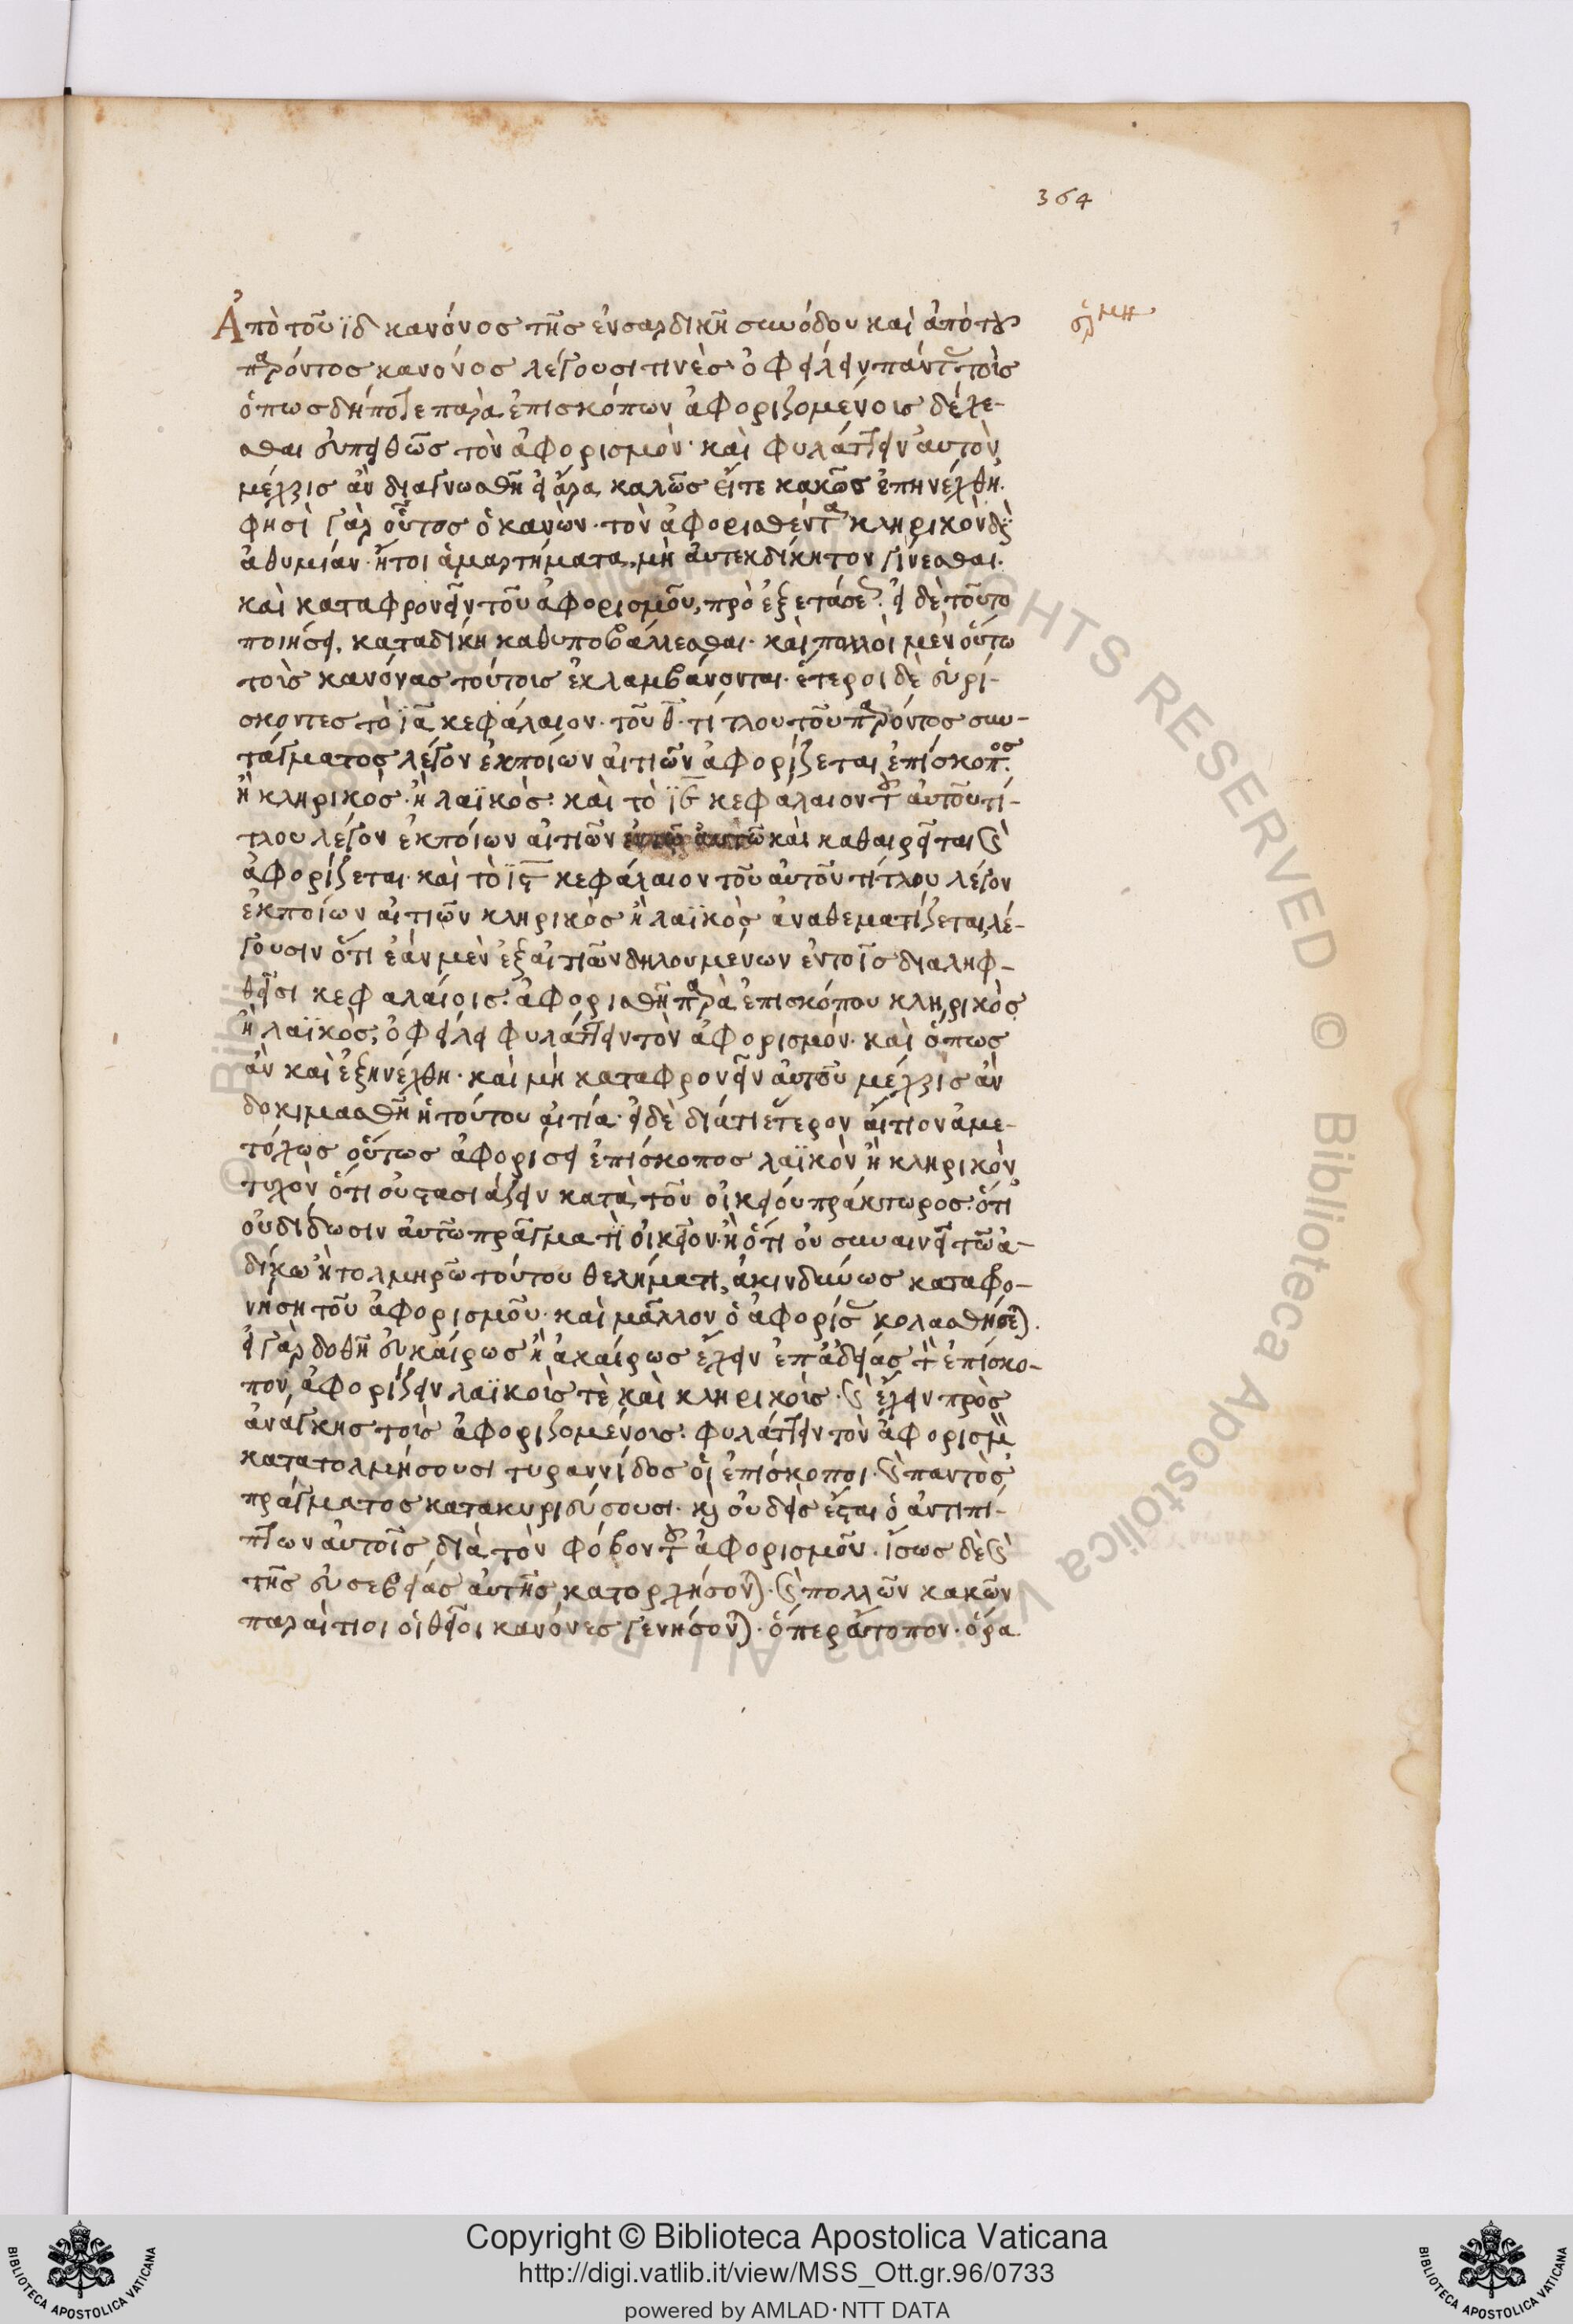 364
Ἀπὸ τοῦ ϊδ κανόνος τῆς ἐν σαρδικῇ συνόδου καὶ ἀπὸ τοῦ
σχ μη
παρόντος κανόνος λέγουσι τινὲς ὀφείλειν πάντας τοὺς
ὁπωσδήποτε παρὰ ἐπισκόπων ἀφοριζομένους δέχε-
σθαι εὐπειθῶς τὸν ἀφορισμόν· καὶ φυλάττειν αὐτὸν
μέχρις ἂν διαγνωσθῆ εἰ ἄρα καλῶς εἴτε κακῶς ἐπηνέχθη.
φησὶ γὰρ οὗτος ὁ κανὼν· τὸν ἀφορισθέντα κληρικὸν δι
ἀθυμίαν ἤτοι ἁμαρτήματα, μὴ αὐτεκδίκητον γίνεσθαι.
καὶ καταφρονεῖν τοῦ ἀφορισμοῦ, πρὸ ἐξετάσεως. εἰ δὲ τοῦτο
ποιήσει, καταδίκη καθυποβάλλεσθαι· καὶ πολλοὶ μὲν οὕτω
τοὺς κανόνας τούτους ἐκλαμβάνονται· ἕτεροι δὲ εὑρί-
σκοντες τὸ ϊα κεφάλαιον· τοῦ θ· τίτλου τοῦ παρόντος συν-
τάγματος λέγον ἐκ ποίων αἰτιῶν ἀφορίζεται ἐπίσκοπος
ἢ κληρικὸς· ἢ λαϊκὸς· καὶ τὸ ϊβ κεφάλαιον τοῦ αὐτοῦ τί-
τλου λέγον ἐκ ποίων αἰτιῶν καὶ καθαιρεῖται καὶ
ἀφορίζεται· καὶ τὸ ϊϛ κεφάλαιον τοῦ αὐτοῦ τίτλου λέγον
ἐκ ποίων αἰτιῶν κληρικὸς ἢ λαϊκὸς ἀναθεματίζεται, λέ-
γουσιν ὅτι ἐὰν μὲν ἐξ αἰτιῶν δηλουμένων ἐν τοῖς διαληφ-
θεῖσι κεφαλαίοις· ἀφορισθῆ παρὰ ἐπισκόπου κληρικὸς
ἢ λαϊκὸς, ὀφείλει φυλάττειν τὸν ἀφορισμόν· καὶ ὅπως
ἂν καὶ ἐξηνέχθη· καὶ μὴ καταφρονεῖν αὐτοῦ μέχρις ἂν
δοκιμασθῆ ἡ τούτου αἰτία· εἰ δὲ διά τι ἕτερον αἴτιον ἀμε-
τόχως οὕτως ἀφορίσει ἐπίσκοπος λαϊκὸν ἢ κληρικὸν
τυχὸν ὅτι συστασιάζειν κατὰ τοῦ οἰκείου πράκτωρος· ὅτι
οὐ δίδωσιν αὐτῶ πράγμα τι οἰκεῖον· ἢ ὅτι οὐ συναινεῖ τῶ ἀ-
δίκω ἢ τολμηρῶ τούτου θελήματι, ἀκινδύνως καταφρο-
νήση τοῦ ἀφορισμοῦ· καὶ μᾶλλον ὁ ἀφορίσας κολασθήσεται.
εἰ γὰρ δοθῆ εὐκαίρως ἢ ἀκαίρως ἔχειν ἐπ' ἀδείας τὸν ἐπίσκο-
πον, ἀφορίζειν λαϊκοὺς τὲ καὶ κληρικοὺς· καὶ ἔχειν πρὸς
ἀνάγκης τοὺς ἀφοριζομένους· φυλάττειν τὸν ἀφορισμὸν
κατατολμήσουσι τυραννίδος οἱ ἐπίσκοποι· καὶ παντὸς
πράγματος κατακυριεύσουσι· καὶ οὐδεὶς ἔσται ὁ ἀντιπί-
πτων αὐτοῖς διὰ τὸν φόβον τοῦ ἀφορισμοῦ· ἴσως δὲ καὶ
τῆς εὐσεβείας αὐτῆς κατορχήσονται· καὶ πολλῶν κακῶν
παραίτιοι οἱ θεῖοι κανόνες γενήσονται· ὅπερ ἄτοπον· ὅρα
Copyright © Biblioteca Apostolica Vaticana
http://digi.vatlib.it/view/MSS_Ott.gr.96/0733
powered by AMLAD·NTT DATA